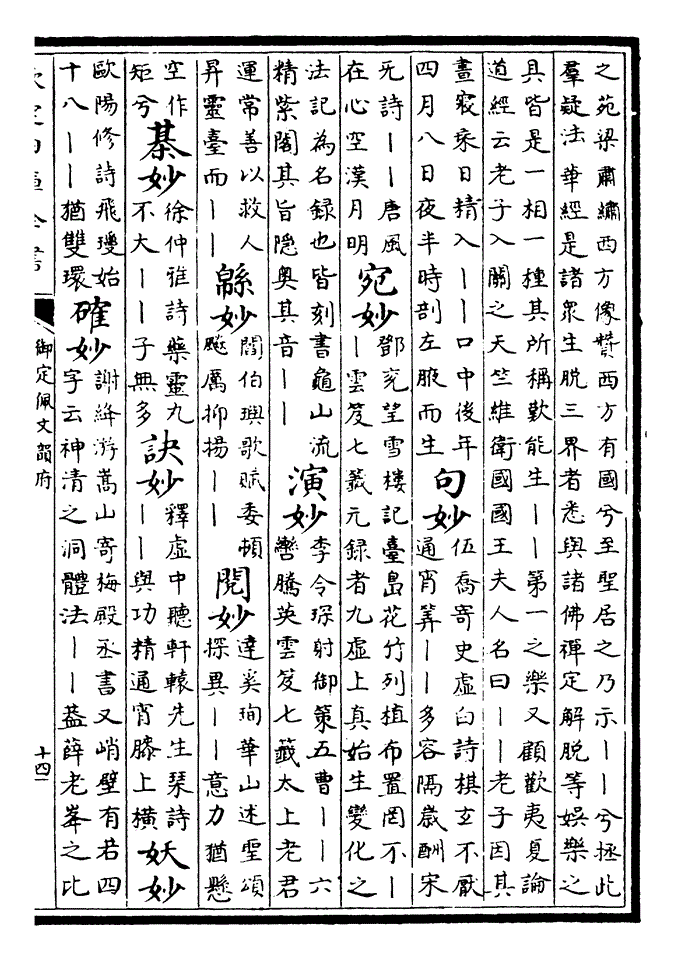 之苑梁肅繡西方像贊西方有國兮至聖居之乃示丨丨兮拯此
羣疑法華經是諸衆生脫三界者悉與諸佛禪定解脫等娛樂之
具皆是一相一種其所稱歎能生丨丨第一之樂又顧歡夷夏論
道經云老子入關之天竺維衛國國王夫人名曰丨丨老子因其
晝寢乘日精入丨丨口中後年
四月八日夜半時剖左腋而生
句妙
伍喬寄史虛白詩棋玄不厭
通宵筭丨丨多容隔歲酬宋
无詩丨丨唐風
在心空漢月明
宛妙
鄧兖望雪樓記臺島花竹列植布置罔不丨
丨雲笈七籤元録者九虛上真始生變化之
法記為名録也皆刻書龜山流
精紫閣其旨隱奥其音丨丨
演妙
李令琛射御策五曹丨丨六
轡騰英雲笈七籤太上老君
運常善以救人
昇靈臺而丨丨
緜妙
閻伯璵歌賦委頓
飈厲抑揚丨丨
閱妙
達奚珣華山述聖頌
探異丨丨意力猶懸
空作
矩兮
棊妙
徐仲雅詩藥靈九
不大丨丨子無多
訣妙
釋虛中聽軒轅先生琴詩
丨丨與功精通宵膝上横
妖妙
歐陽修詩飛瓊始
十八丨丨猶雙環
確妙
謝絳游嵩山寄梅殿丞書又峭壁有若四
字云神清之洞體法丨丨葢薛老峯之比
欽定四庫全書
御定佩文韻府
十四